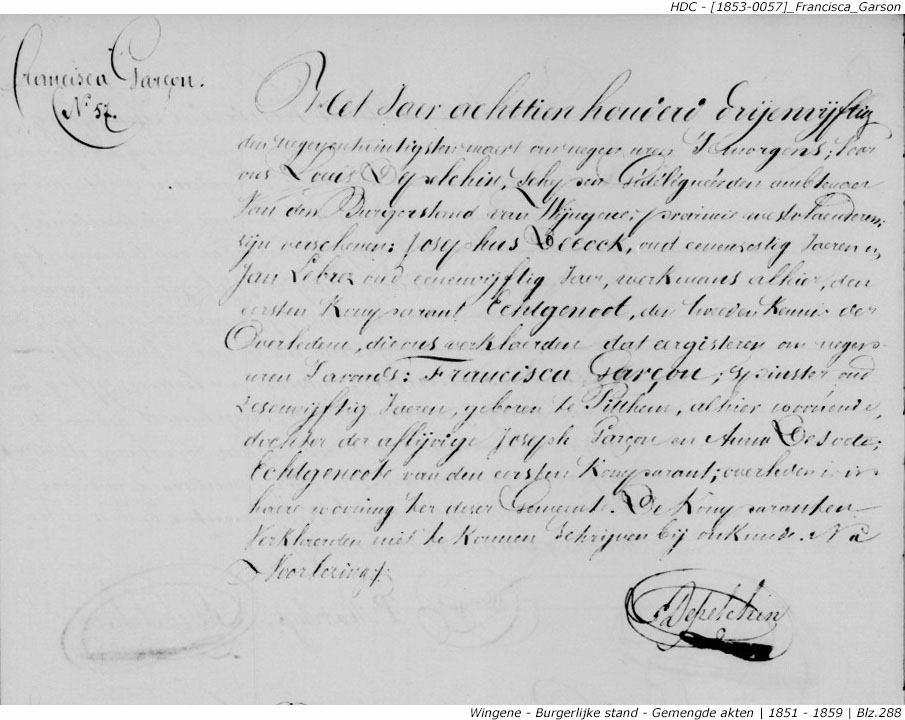 HDC - [1853-0057]_Francisca_Garson
Francisca Garçon.
N° 57.
Het Jaer achttien honderd drijenvijftig
den negenentwintigsten maert om negen uren S'morgens, voor
ons Louis Depelchin, Schepen Gedélégueerden ambtenaer
Van den Burgerstand van Wijngene, provincie westvlaenderen,
zijn verschenen: Josephus Decock, oud eenenzestig Jaeren en
Jan Lebrez oud eenenvijftig Jaer, werkmans alhier, den
eersten Komparant Echtgenoot, den tweeden Kennis der
Overledene, die ons verklaerden dat eergisteren om negen
uren S'avonds: Francisca Garçon, Spinster oud
zesenvijftig Jaeren, geboren te Pitthem, alhier woonende,
dochter der aflijvige Joseph Garçon en Anna
Echtgenoote van den eersten Komparant; overleden is in
haere wooning ter dezer Gemeente. De Komparanten
Verklaerden niet te Konnen Schrijven bij onkunde. Na
Voorlezing
Depelchin
Wingene - Burgerlijke stand - Gemengde akten | 1851 - 1859 | Blz.288